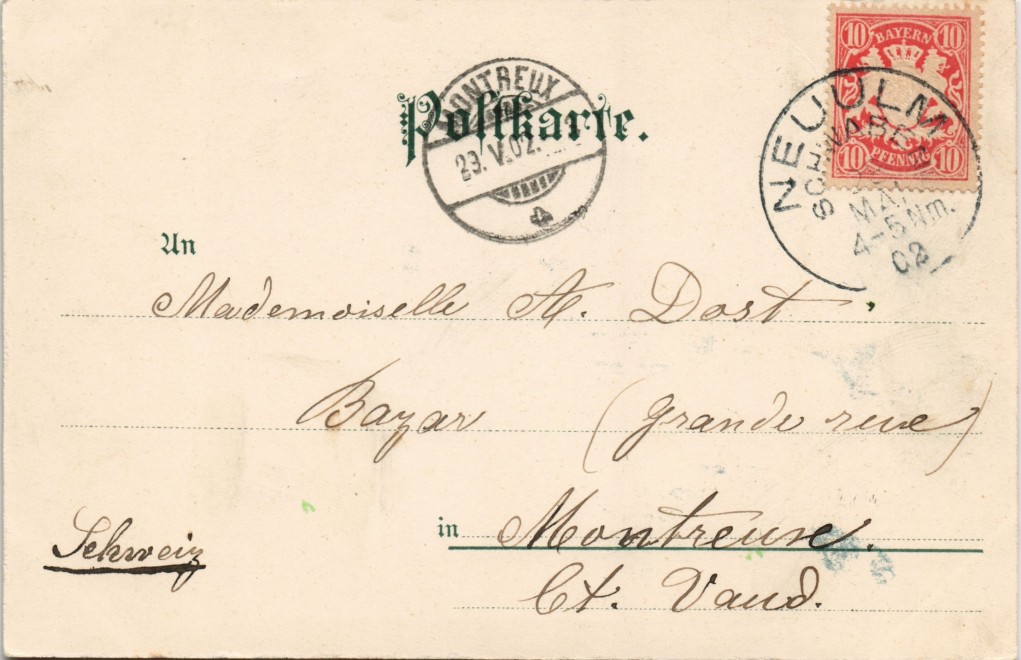 10 BAYERN 10
10 PFENNIG 10
NEU ULM
SCHWABEN
MAI
4-5 Nm.
02
MONTREUX
29.V.02.
Postkarte.
An
Mademoiselle A. Dost
Bazar (grande rue)
in Montreux.
Schweiz
Ct. Vaud.